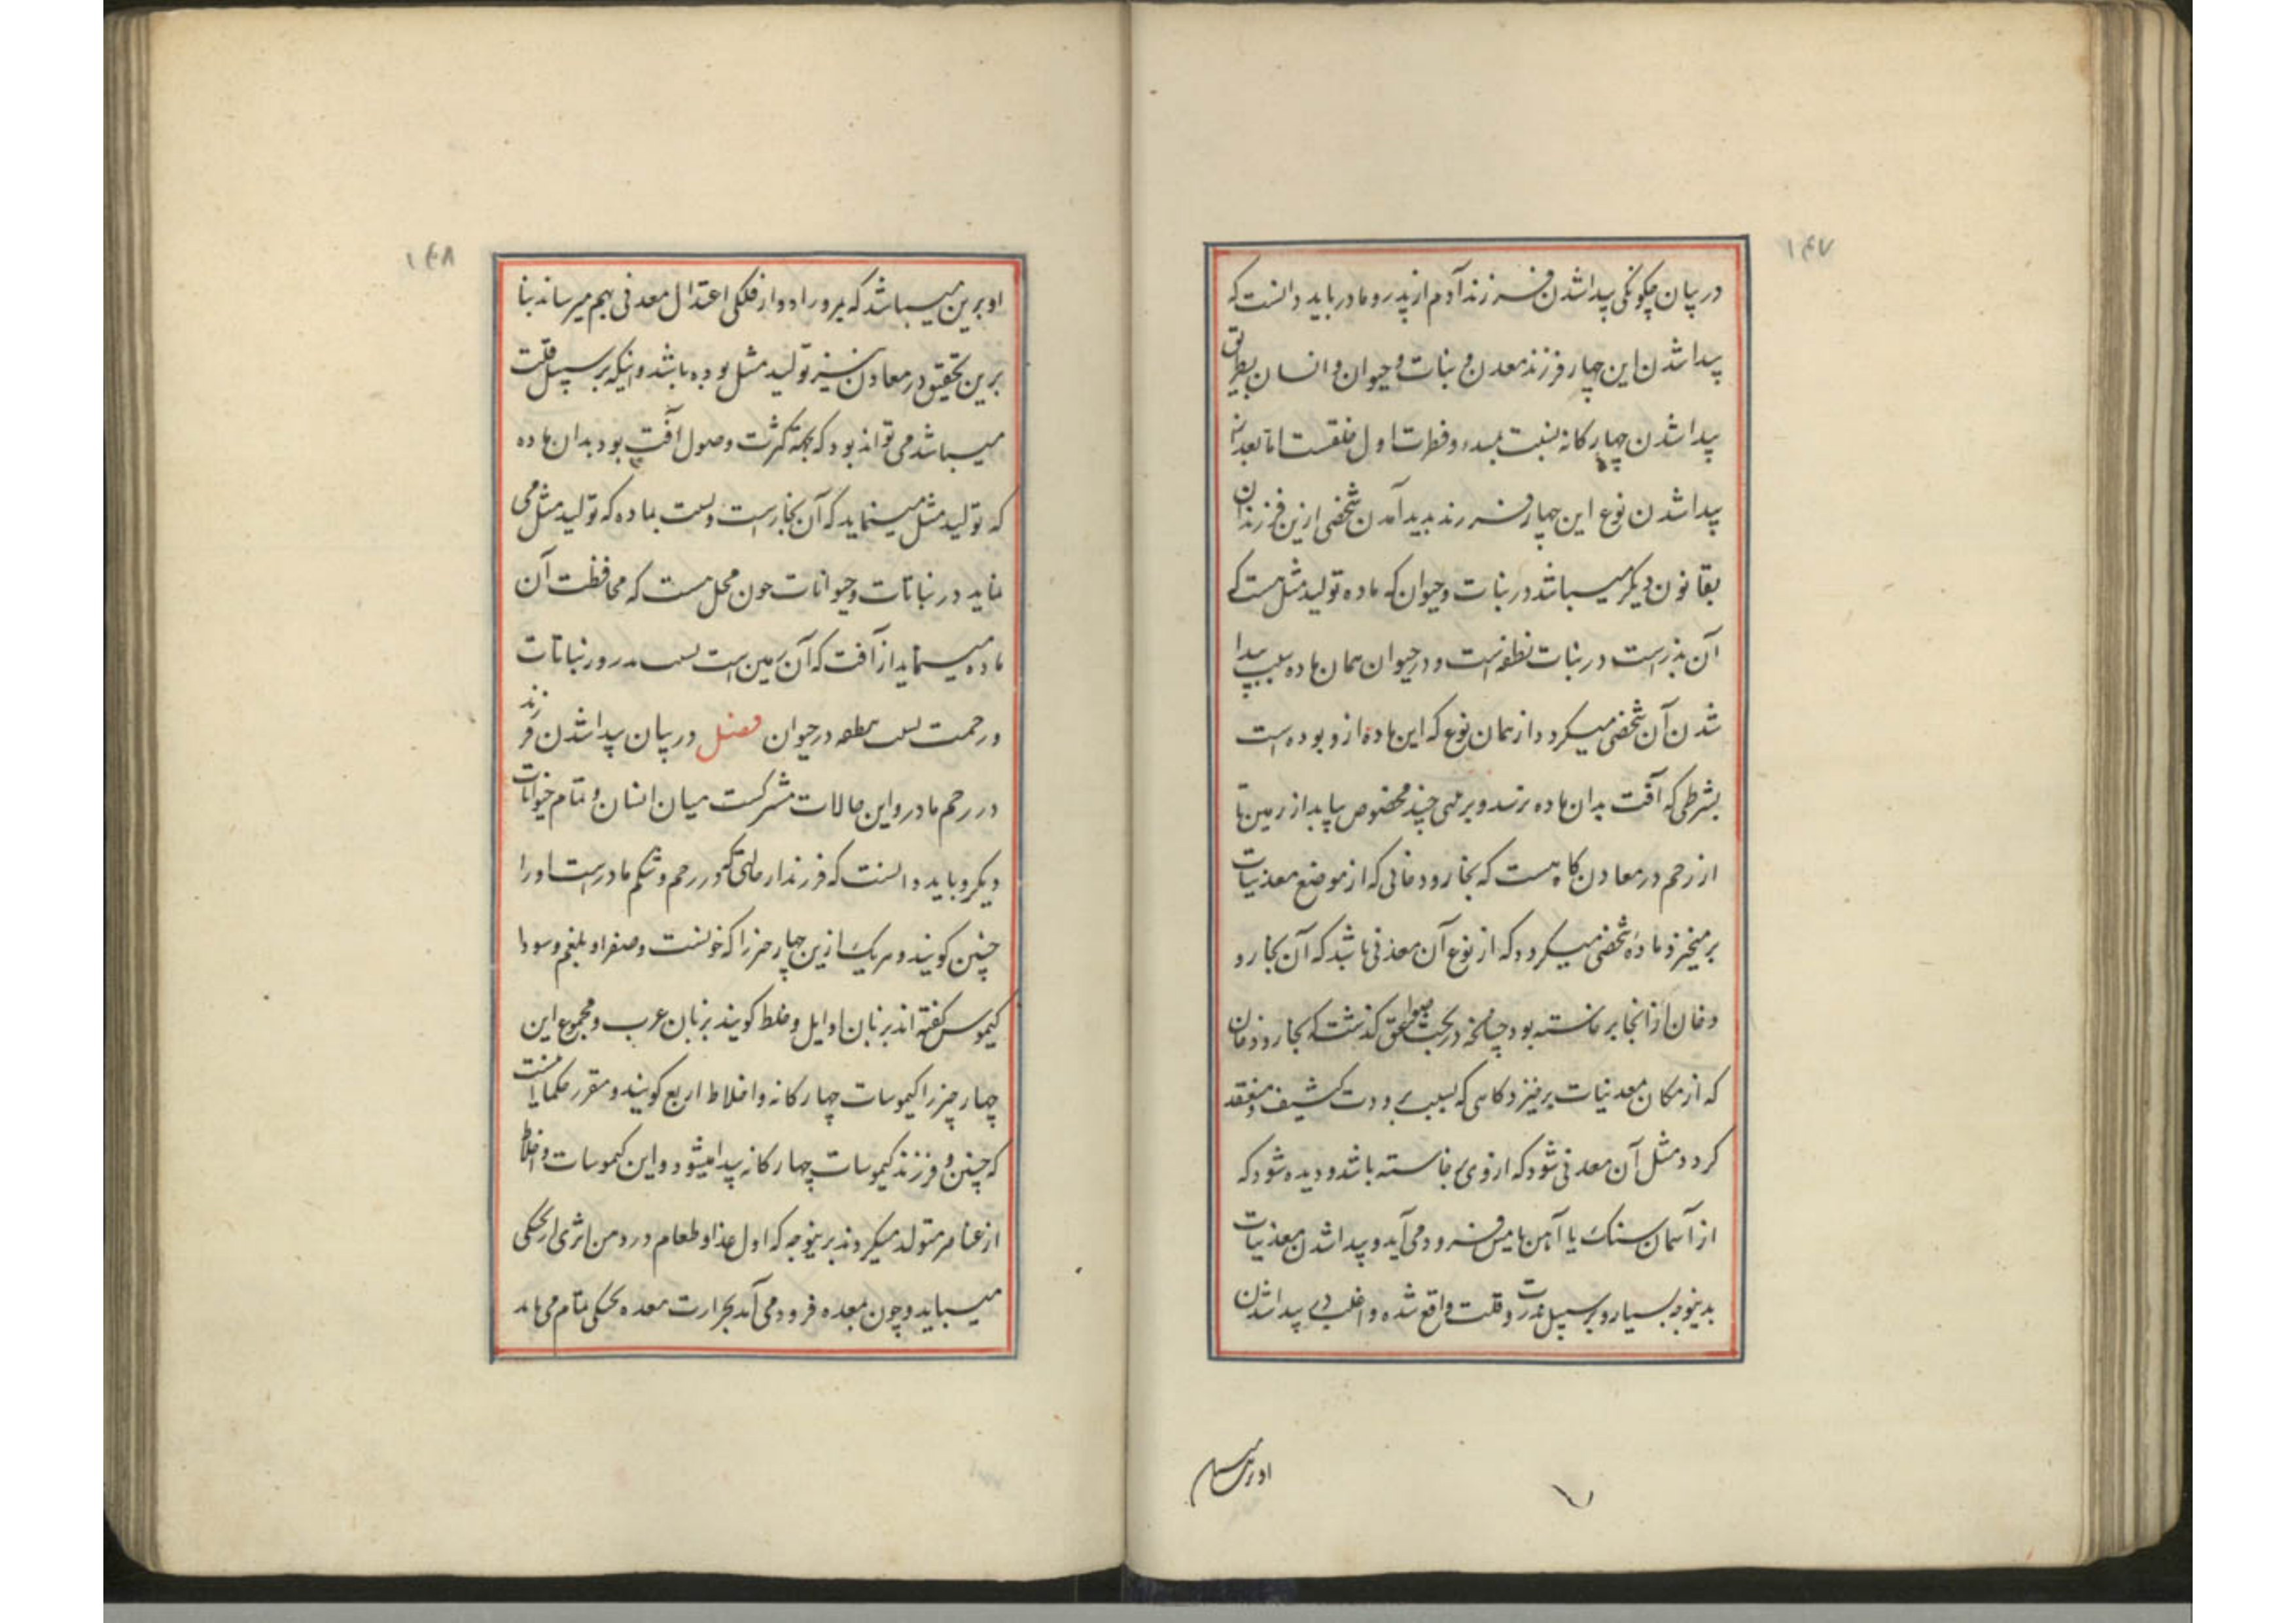 ۱۴۷
در بیان چکونکی پیداشدن فرزند آدم از پدر و مادر باید دانست که
پیداشدن این چهار فرزند معدن و نبات و حیوان و انسان بطریق
پیداشدن چهارکانه نسبت بمبدء و فطرت اول خلقست اما بعد از
پیداشدن نوع این چهار فرزند پدید آمدن شخصی ازین فرزندان
بقانون دیکر میباشد در نبات و حیوان که ماده تولید مثل هست که
آن بذرست در نبات نطفه است و در حیوان همان ماده سبب پیدا
شدن آن شخص میکردد از همان نوع که این ماده ازو بوده است
بشرطی که آفت بدان ماده نرسد و برخی چند مخصوص بیابد از زمین تا
از رحم در معادن کاه هست که بخار و دخانی که از موضع معدنیات
برمیخیزد ماده شخصی میکردد که از نوع آن معدنی باشد که آن بخار و
دخان از انجا برخاسته بود چنانچه در بحث صواعق کذشت که بخار و دخان
که از مکان معدنیات برخیزد کاهی که بسبب برودت کثیف و منعقد
کردد مثل آن معدنی شود که ازوی برخاسته باشد و دیده شود که
از آسمان سنک یا آهن یا مس فرود می آید و پیداشدن معدنیات
بدینوجه بسیار و برسبیل ندرت و قلت واقع شده و اغلب در پیداشدن
او برین میباشد
۱۴۸
او برین میباشد که بمرور ادوار فلکی اعتدال معدنی بهم میرساند بنا
برین تحقیق در معادن نیز تولید مثل بوده باشد و اینکه برسبیل قلت
میباشد می تواند بود که بجهة کثرت وصول آفت بود بدان ماده
که تولید مثل مینماید که آن بخارست و نسبت بماده که تولید مثل می
نماید در نباتات و حیوانات چون محل هست که محافظت آن
ماده مینماید از آفت که آن زمین است نسبت بذر در نباتات
و رحمت نسبت نطفه در حیوان فصل در بیان پیداشدن فرزند
در رحم مادر و این حالات مشترکست میان انسان و تمام حیوانات
دیکر و باید دانست که فرزند از حالتی که در رحم و شکم مادرست او را
جنین کویند و هریک ازین چهار چیز را که خونست و صفرا و بلغم و سودا
کیموس کفته اند بزبان اوایل و خلط کویند بزبان عرب و مجموع این
چهار چیز را کیموسات چهارکانه و اخلاط اربع کویند و مقرر حکما اینست
که جنین و فرزند کیموسات چهارکانه پیدا میشود و این کیموسات و اخلاط
از عناصر متولد میکردند برینوجه که اول غذا و طعام در دهن اثری از پختکی
میباید و چون بمعده فرود می آید بحرارت معده پختکی تمام می یابد